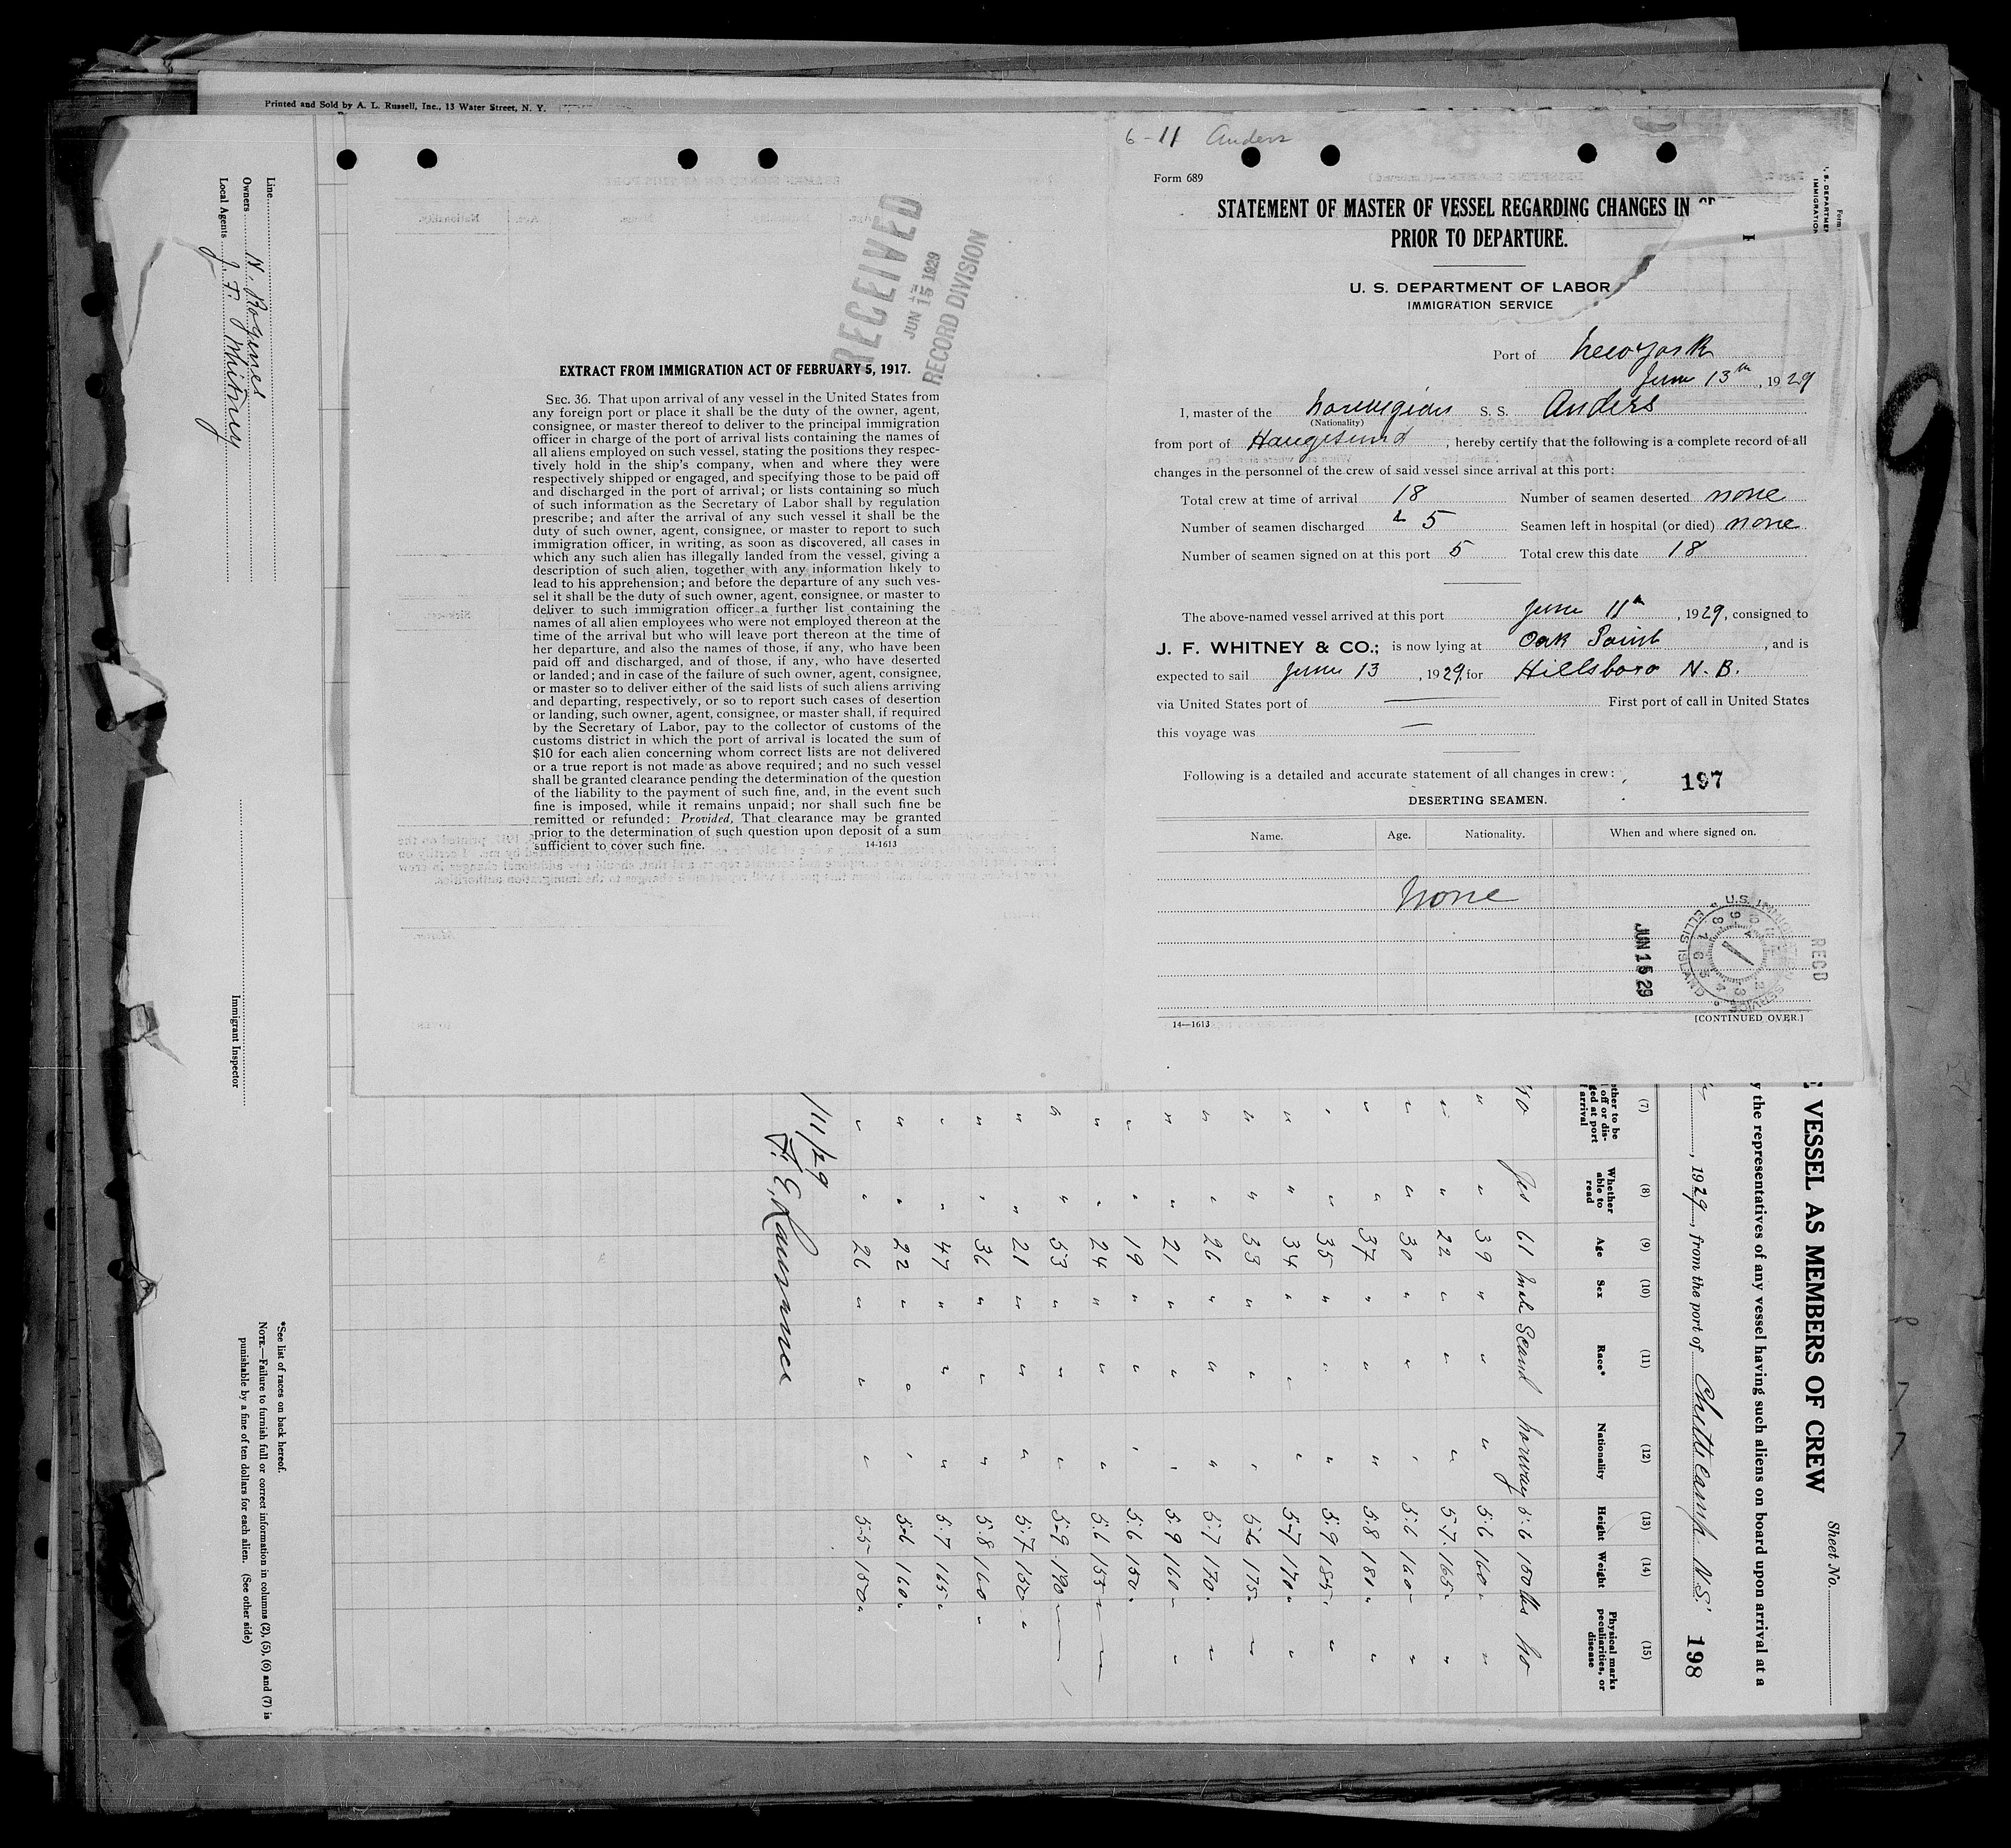 Printed and Sold by A. L. Russell, Inc., 13 Water Street, N. Y.
Line
Owners
Local Agents J. F. Whitney
Immigrant Inspector
*See list of races on back hereof.
NOTE.—Failure to furnish full or correct information in columns (2), (5), (6) and (7) is
punishable by a fine of ten dollars for each alien. (See other side)
RECEIVED
JUN 15 1929
RECORD DIVISION
EXTRACT FROM IMMIGRATION ACT OF FEBRUARY 5, 1917.
SEC. 36. That upon arrival of any vessel in the United States from
any foreign port or place it shall be the duty of the owner, agent,
consignee, or master thereof to deliver to the principal immigration
officer in charge of the port of arrival lists containing the names of
all aliens employed on such vessel, stating the positions they respec-
tively hold in the ship's company, when and where they were
respectively shipped or engaged, and specifying those to be paid off
and discharged in the port of arrival; or lists containing so much
of such information as the Secretary of Labor shall by regulation
prescribe; and after the arrival of any such vessel it shall be the
duty of such owner, agent, consignee, or master to report to such
immigration officer, in writing, as soon as discovered, all cases in
which any such alien has illegally landed from the vessel, giving a
description of such alien, together with any information likely to
lead to his apprehension; and before the departure of any such ves-
sel it shall be the duty of such owner, agent, consignee, or master to
deliver to such immigration officer a further list containing the
names of all alien employees who were not employed thereon at the
time of the arrival but who will leave port thereon at the time of
her departure, and also the names of those, if any, who have been
paid off and discharged, and of those, if any, who have deserted
or landed; and in case of the failure of such owner, agent, consignee,
or master so to deliver either of the said lists of such aliens arriving
and departing, respectively, or so to report such cases of desertion
or landing, such owner, agent, consignee, or master shall, if required
by the Secretary of Labor, pay to the collector of customs of the
customs district in which the port of arrival is located the sum of
$10 for each alien concerning whom correct lists are not delivered
or a true report is not made as above required; and no such vessel
shall be granted clearance pending the determination of the question
of the liability to the payment of such fine, and, in the event such
fine is imposed, while it remains unpaid; nor shall such fine be
remitted or refunded: Provided, That clearance may be granted
prior to the determination of such question upon deposit of a sum
sufficient to cover such fine. 14-1613
6-11 Anders
Form 689
STATEMENT OF MASTER OF VESSEL REGARDING CHANGES IN
PRIOR TO DEPARTURE.
U. S. DEPARTMENT OF LABOR
IMMIGRATION SERVICE
Port of New York
June 13th, 1929
I, master of the Norwegian S. S. Anders
(Nationality)
from port of Haugesund, hereby certify that the following is a complete record of all
changes in the personnel of the crew of said vessel since arrival at this port:
Total crew at time of arrival 18 Number of seamen deserted none
Number of seamen discharged 5 Seamen left in hospital (or died) none
Number of seamen signed on at this port 5 Total crew this date 18
The above-named vessel arrived at this port June 11th, 1929, consigned to
J. F. WHITNEY & CO.; is now lying at Oak Point, and is
expected to sail June 13, 1929, for Hillsboro N. B.
via United States port of — First port of call in United States
this voyage was —
Following is a detailed and accurate statement of all changes in crew:
197
DESERTING SEAMEN.
Name. Age. Nationality. When and where signed on.
None
JUN 15 29
U.S. IMMIGRATION SERVICE ELLIS ISLAND
RECD
14—1613 [CONTINUED OVER.]
VESSEL AS MEMBERS OF CREW
Sheet No.
the representatives of any vessel having such aliens on board upon arrival at a
, 1929, from the port of N.S. 198
(7) (8) (9) (10) (11) (12) (13) (14) (15)
Whether able to read Age Sex Race* Nationality Height Weight Physical marks peculiarities, or disease
No Yes 61 Male Scand Norway 5.6 150 lbs No
" " 39 " " " 5.6 160 "
" " 22 " " " 5.7 165 "
" " 30 " " " 5.6 160 "
" " 37 " " " 5.8 181 "
" " 35 " " " 5.9 185 "
" " 34 " " " 5-7 170 "
" " 33 " " " 5-6 175 "
" " 26 " " " 5.7 170 "
" " 21 " " " 5.9 160 "
" " 19 " " " 5.6 150 "
" " 24 " " " 5.6 155 "
" " 53 " " " 5-9 190 "
" " 21 " " " 5.7 150 "
" " 36 " " " 5.8 160 "
" " 47 " " " 5.7 165 "
" " 22 " " " 5-6 160 "
" " 26 " " " 5-5 150 "
9